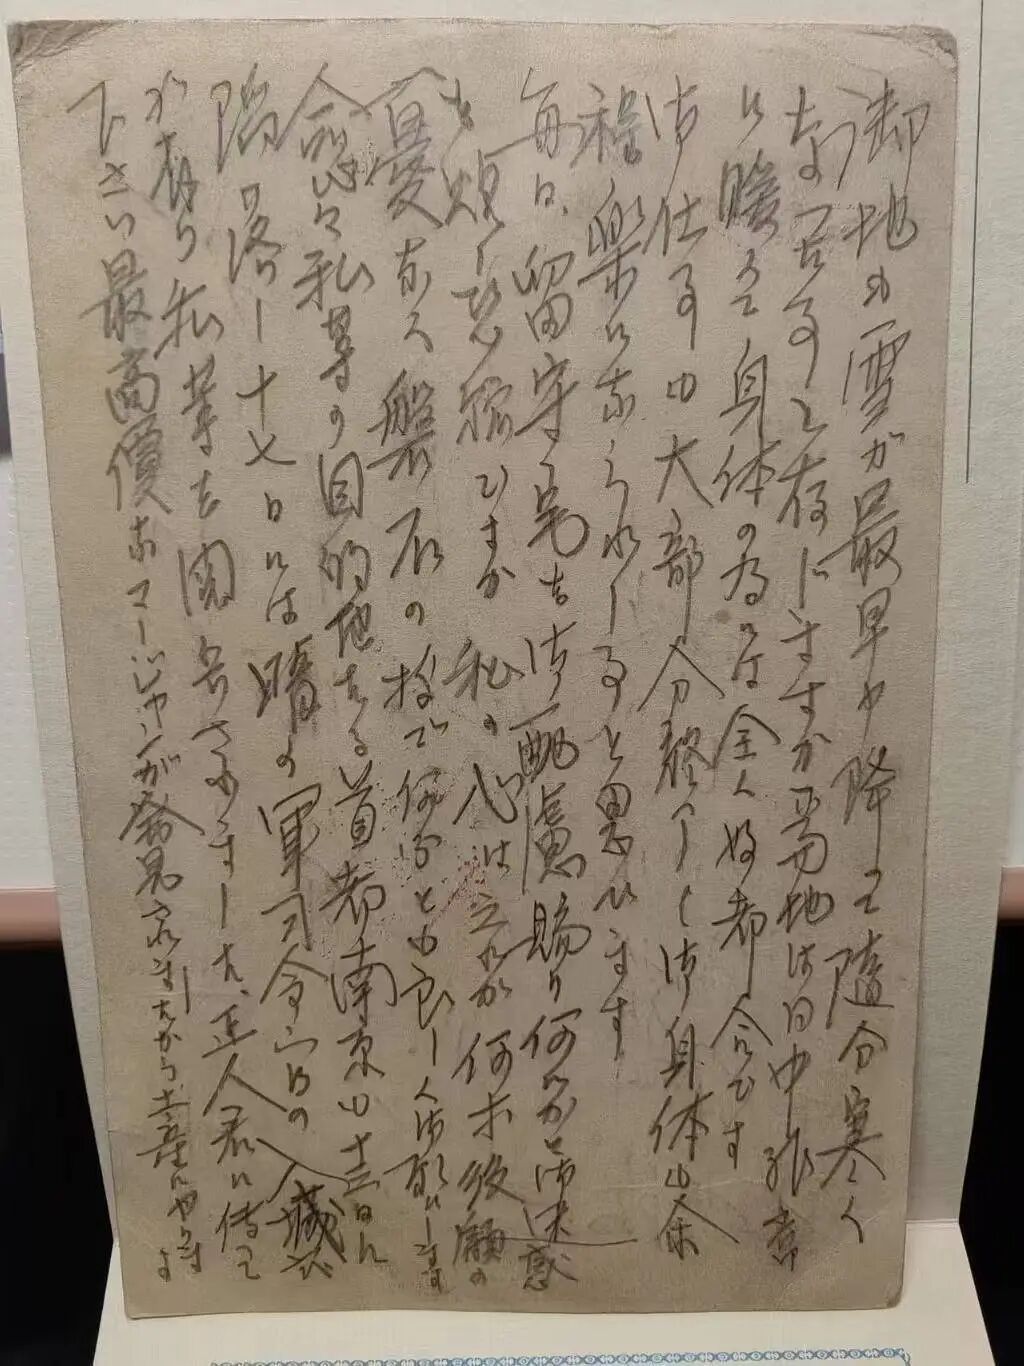 御地も雪が最早や降って随分寒く
なって居る事と存じますが当地は日中非常
に暖くて身体の為には全く好都合です
御仕事の大部分終りし御身体も余
程楽になられし事と思います
毎日、留守宅を御配慮賜り何かと御迷惑
を煩し恐縮ですが私の心は之れが何より後顧の
憂なく磐石の構で何分とも宜しく御願いします
愈々私等の目的地たる首都南京も十三日に
陥落し十七日には晴の軍司令官の入城で
が有り私等も閲兵されました、正人君に傳へて
下さい最高價なマージャンが発見されましたから土産にやります